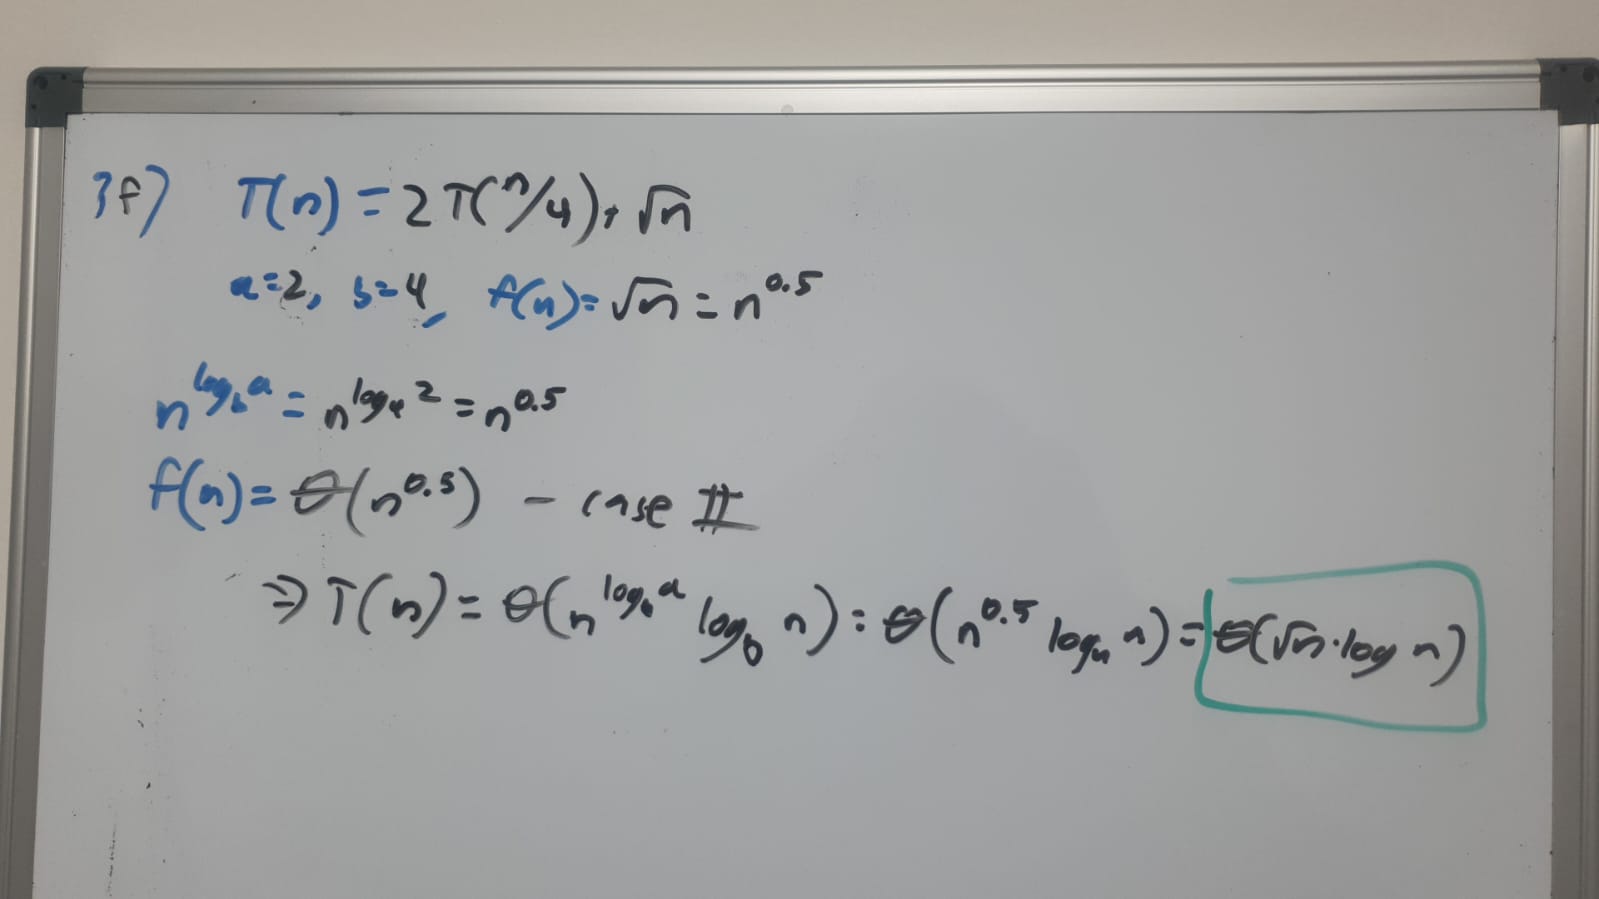 3f) T(n) = 2T(n/4) + √n
a=2, b=4, f(n)= √n = n^0.5
n^log_b a = n^log_4 2 = n^0.5
f(n)= Θ(n^0.5) - case II
⇒ T(n) = Θ(n^log_b a log_b n) = Θ(n^0.5 log_4 n) = Θ(√n·log n)